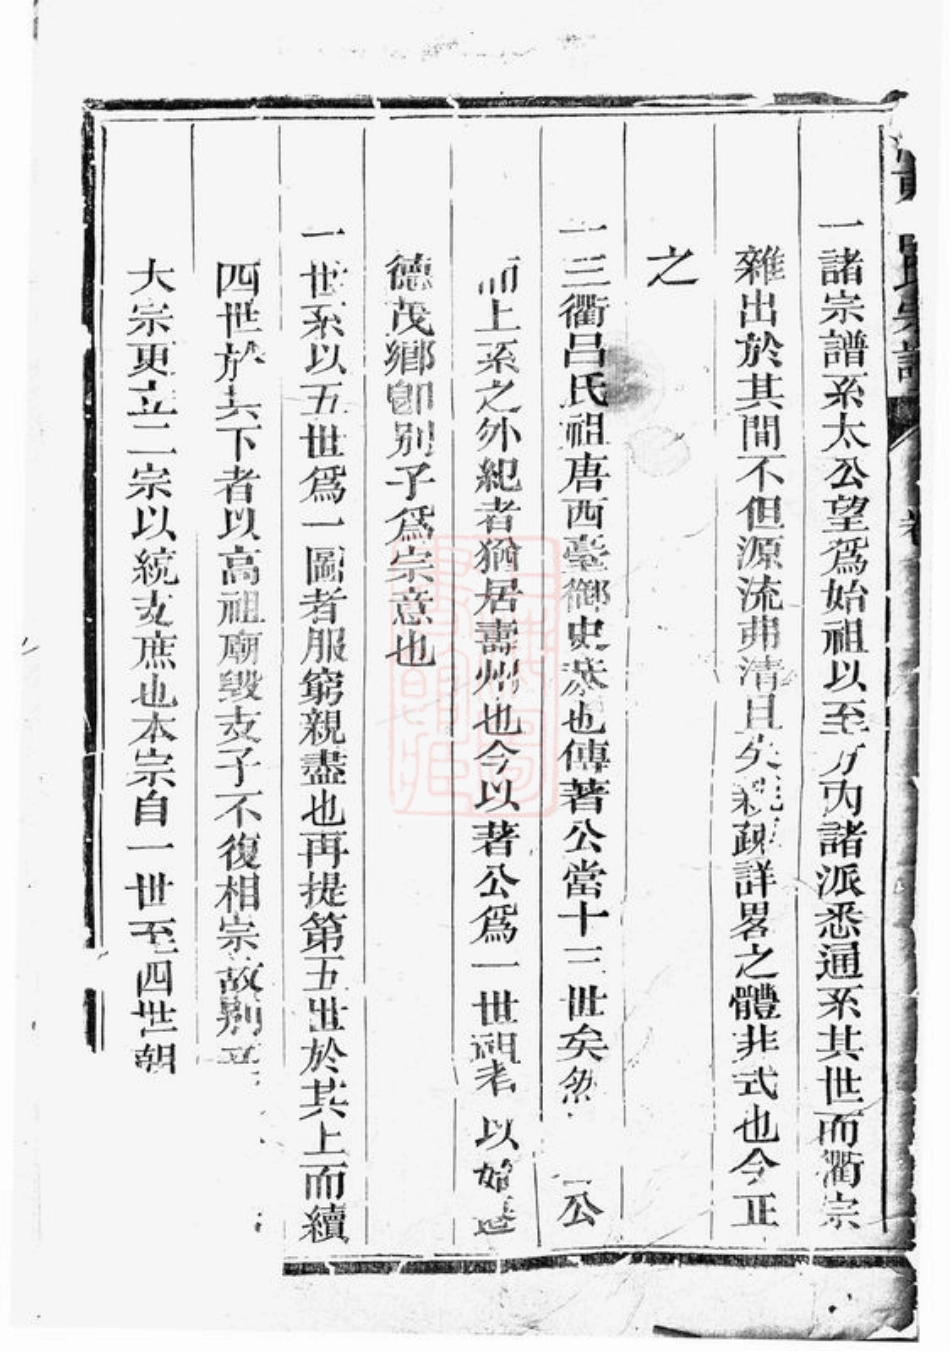 一諸宗譜系太公望爲始祖以至方內諸派悉通系其世而衢宗
雜出於其間不但源流弗清且失親疎詳畧之體非式也今正
之
一三衢呂氏祖唐西臺御史 也傳著公當十三世矣然 公
而上系之外紀者猶居壽州也今以著公爲一世祖者以始遷
德茂鄉卽別子爲宗意也
一世系以五世爲一圖者服窮親盡也再提第五世於其上而續
四世於其下者以高祖廟毀支子不復相宗故別立
大宗更立二宗以統支庶也本宗自一世至四世朝
呂氏宗譜 卷